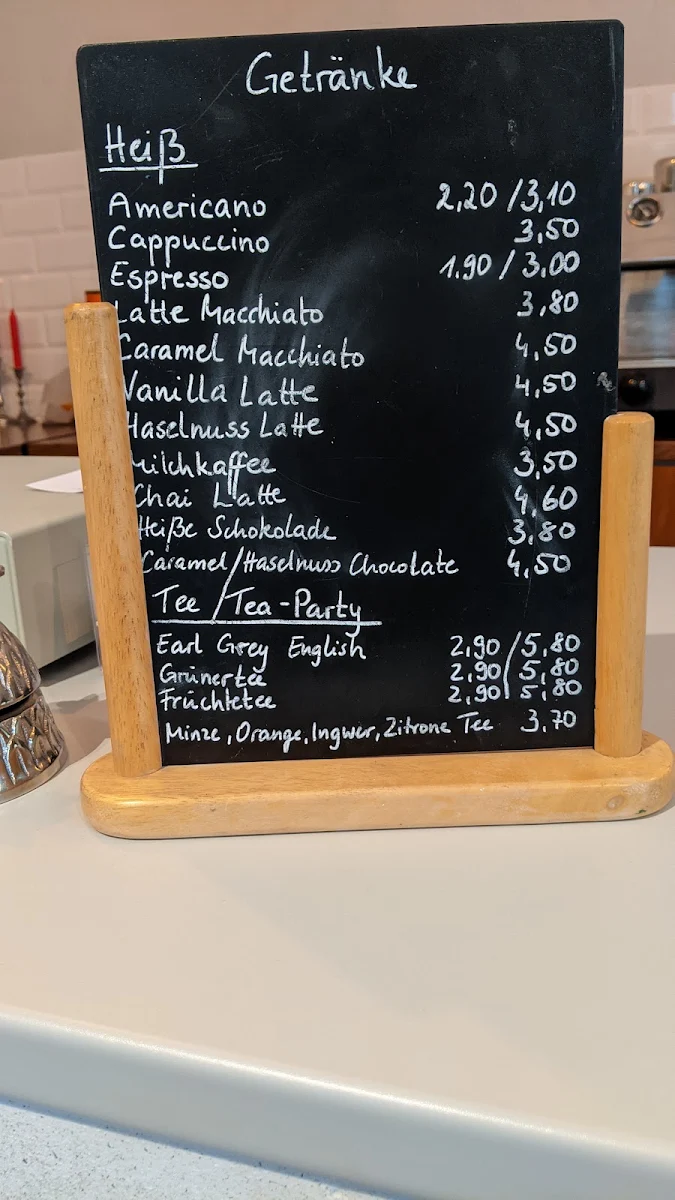 Getränke
Heiß
Americano 2,20 / 3,10
Cappuccino 3,50
Espresso 1.90 / 3,00
Latte Macchiato 3,80
Caramel Macchiato 4,50
Vanilla Latte 4,50
Haselnuss Latte 4,50
Milchkaffee 3,50
Chai Latte 4,60
Heiße Schokolade 3,80
Caramel/Haselnuss Chocolate 4,50
Tee / Tea-Party
Earl Grey English 2,90 / 5,80
Grünertee 2,90 / 5,80
Früchtetee 2,90 / 5,80
Minze, Orange, Ingwer, Zitrone Tee 3,70